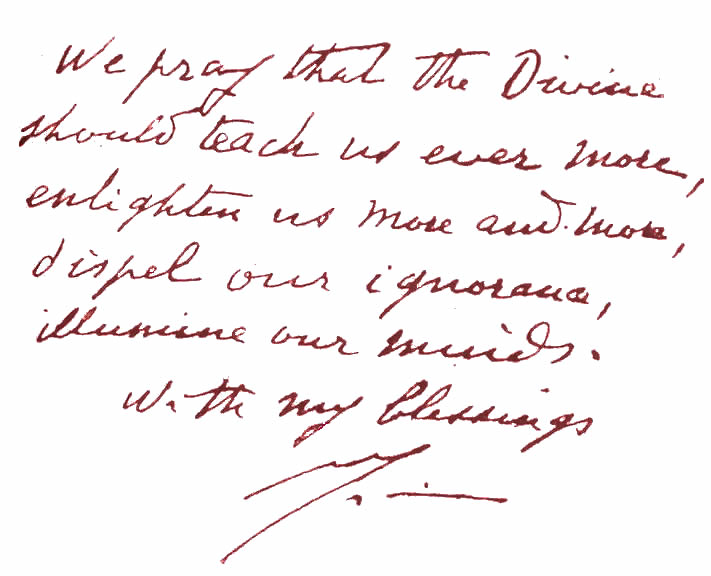 We pray that the Divine
should teach us ever more,
enlighten us more and more,
dispel our ignorance,
illumine our minds.
With my blessings